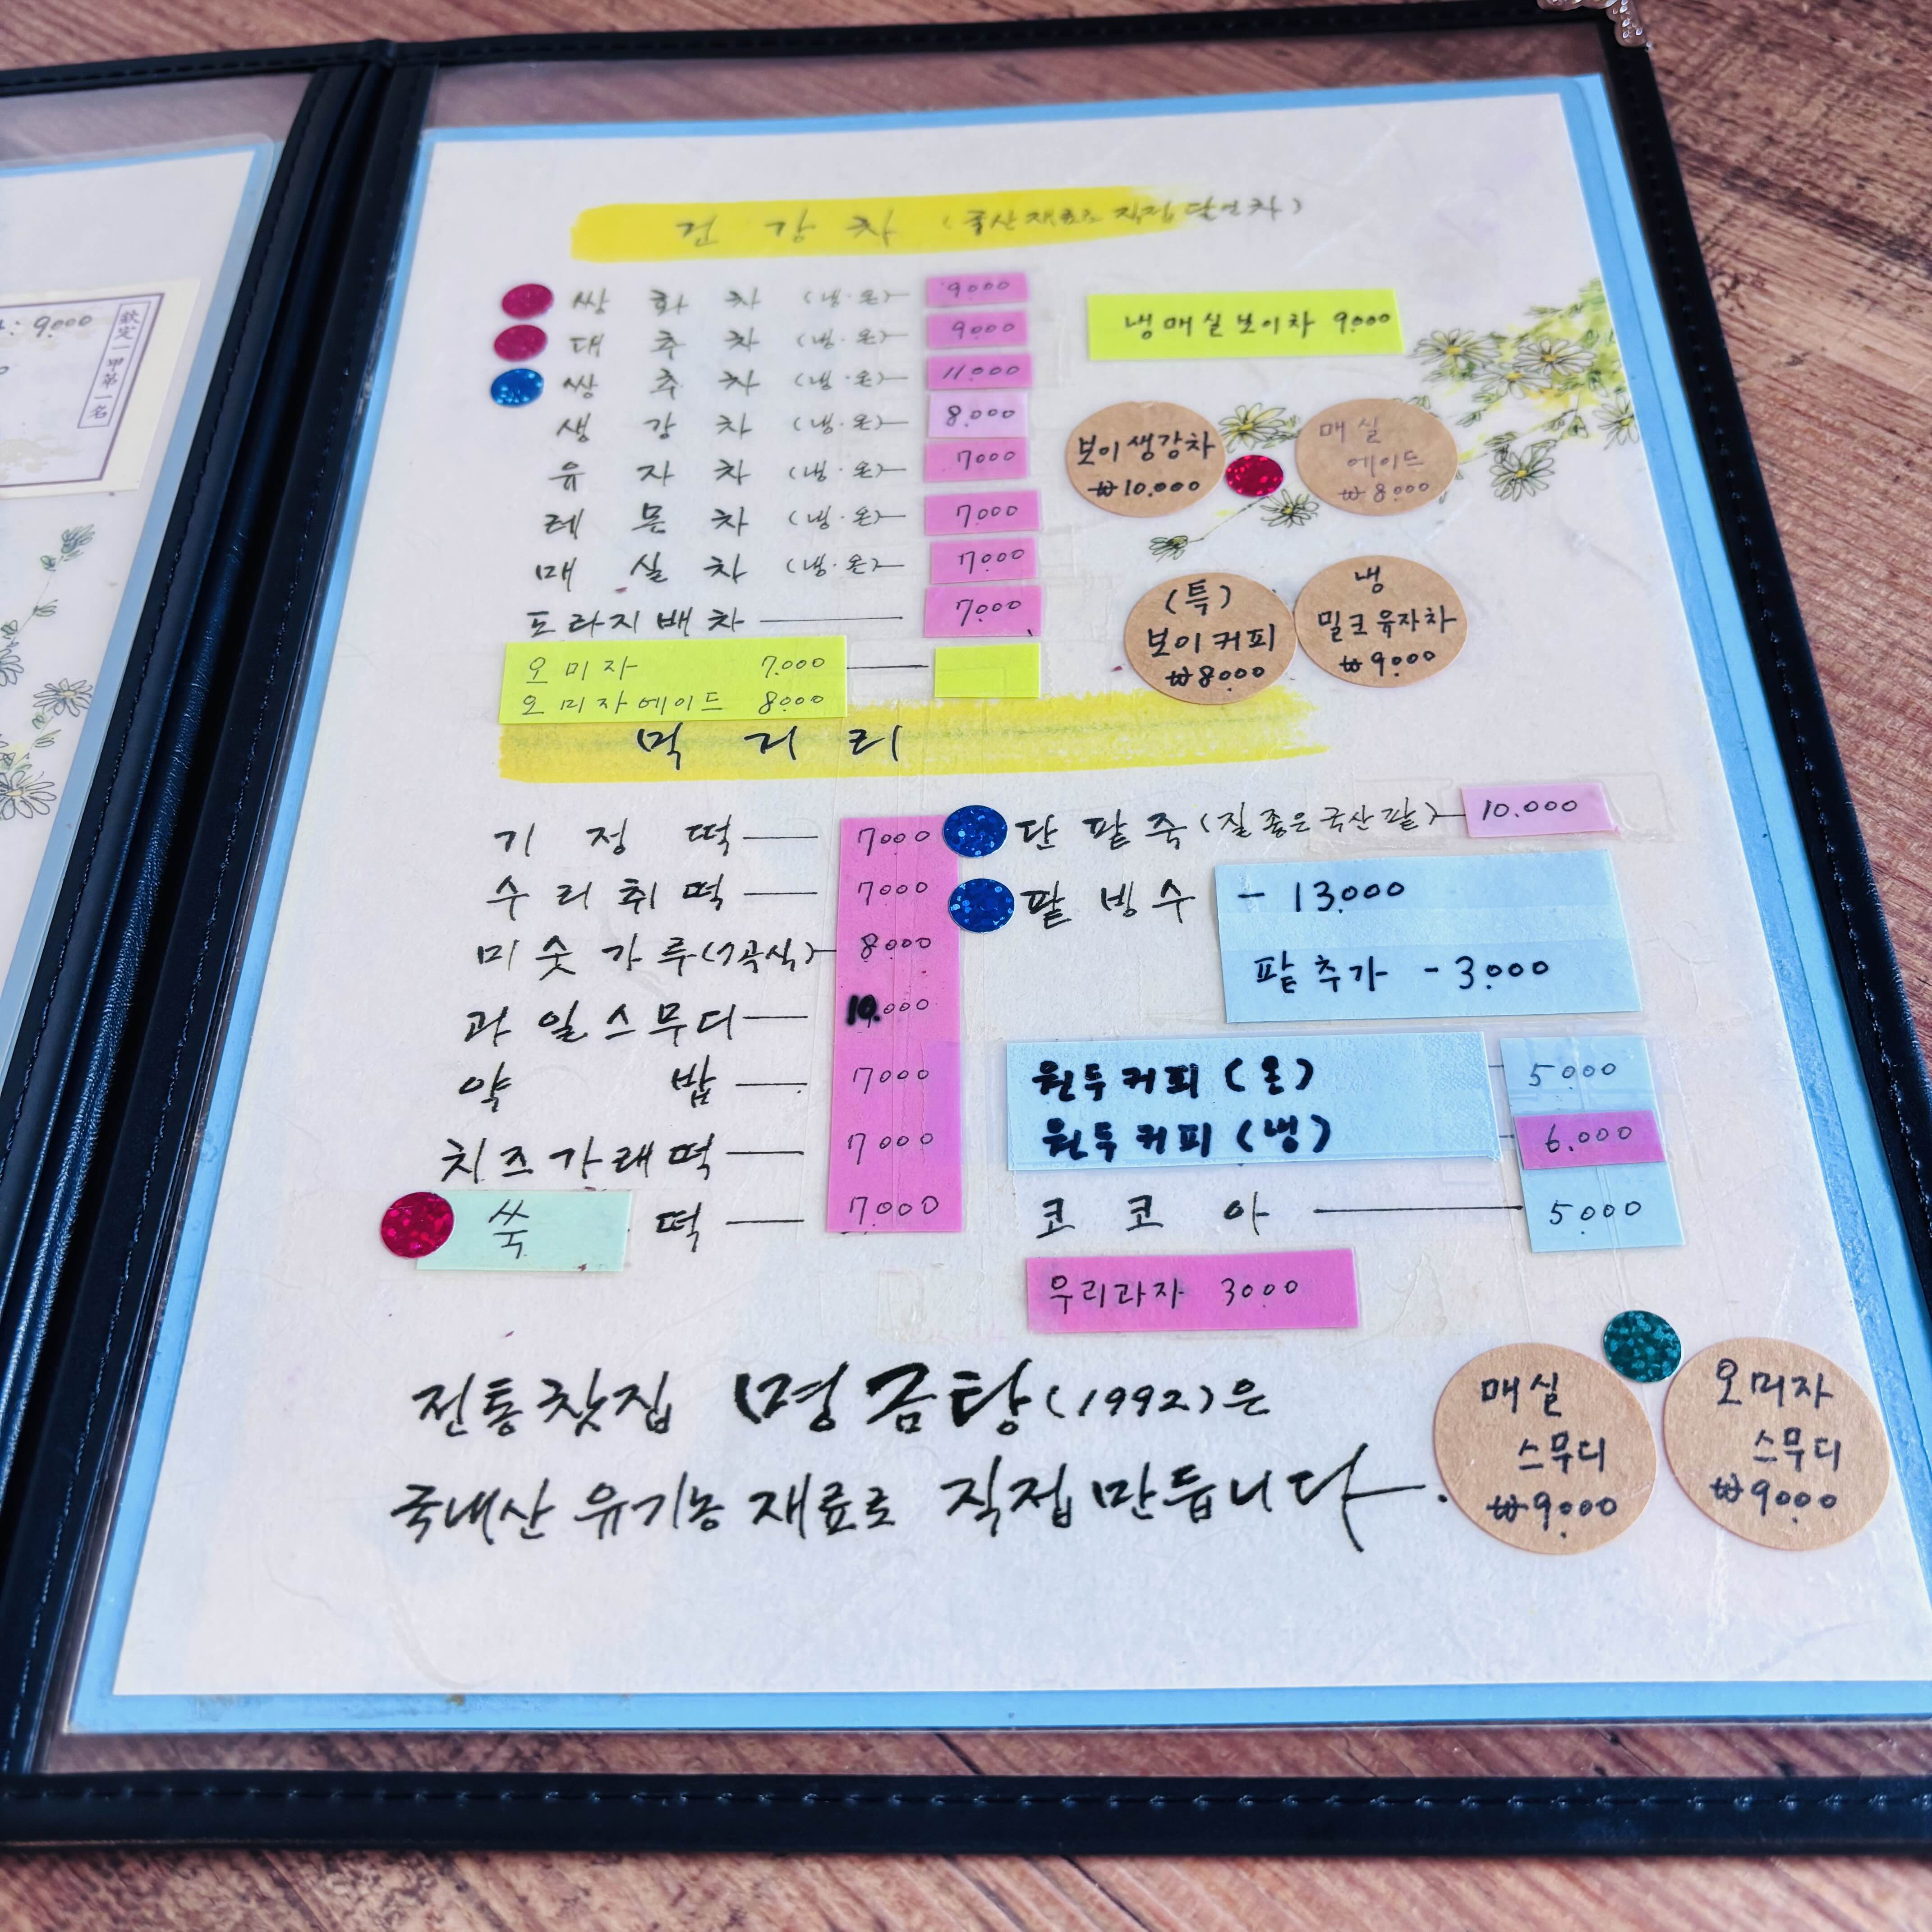 9.000
欽定一甲第一名
건 강 차 (국산재료로 직접 달인차)
쌍 화 차 (냉·온) 9.000
대 추 차 (냉·온) 9.000
쌍 추 차 (냉·온) 11.000
생 강 차 (냉·온) 8.000
유 자 차 (냉·온) 7.000
레 몬 차 (냉·온) 7.000
매 실 차 (냉·온) 7.000
도라지배차 7.000
오미자 7.000
오미자에이드 8.000
냉매실보이차 9.000
보이생강차
₩10.000
매실
에이드
₩8.000
(특)
보이커피
₩8.000
냉
밀크유자차
₩9.000
먹 거 리
기 정 떡 7.000
수 리 취 떡 7.000
미 숫 가 루 (7곡식) 8.000
과 일 스 무 디 10.000
약 밥 7.000
치즈가래떡 7.000
쑥 떡 7.000
단 팥 죽 (질 좋은 국산팥) 10.000
팥 빙 수 - 13.000
팥추가 - 3.000
원두커피 (온) 5.000
원두커피 (냉) 6.000
코 코 아 5.000
우리과자 3.000
전통찻집 명금탕(1992)은
국내산 유기농 재료로 직접 만듭니다.
매실
스무디
₩9.000
오미자
스무디
₩9.000